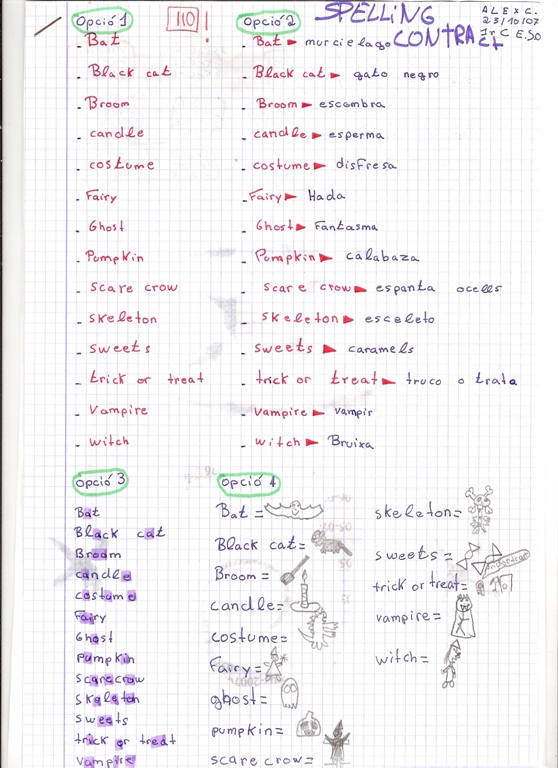 SPELLING
CONTRACT
ALEX C.
23/10/07
1r C ESO
110!
Opció 1
- Bat
- Black cat
- Broom
- candle
- costume
- Fairy
- Ghost
- Pumpkin
- Scare crow
- skeleton
- sweets
- trick or treat
- Vampire
- witch
Opció 2
- Bat ► murcielago
- Black cat ► gato negro
- Broom ► escombra
- candle ► esperma
- costume ► disfresa
- Fairy ► Hada
- Ghost ► Fantasma
- Pumpkin ► calabaza
- scare crow ► espanta ocells
- skeleton ► esceleto
- sweets ► caramels
- trick or treat ► truco o trata
- vampire ► vampir
- witch ► Bruixa
Opció 3
Bat
Black cat
Broom
candle
costume
Fairy
Ghost
Pumpkin
scarecrow
skeleton
sweets
trick or treat
vampire
Opció 4
Bat =
Black cat =
Broom =
candle =
costume =
Fairy =
ghost =
pumpkin =
scare crow =
skeleton =
sweets =
trick or treat =
vampire =
witch =